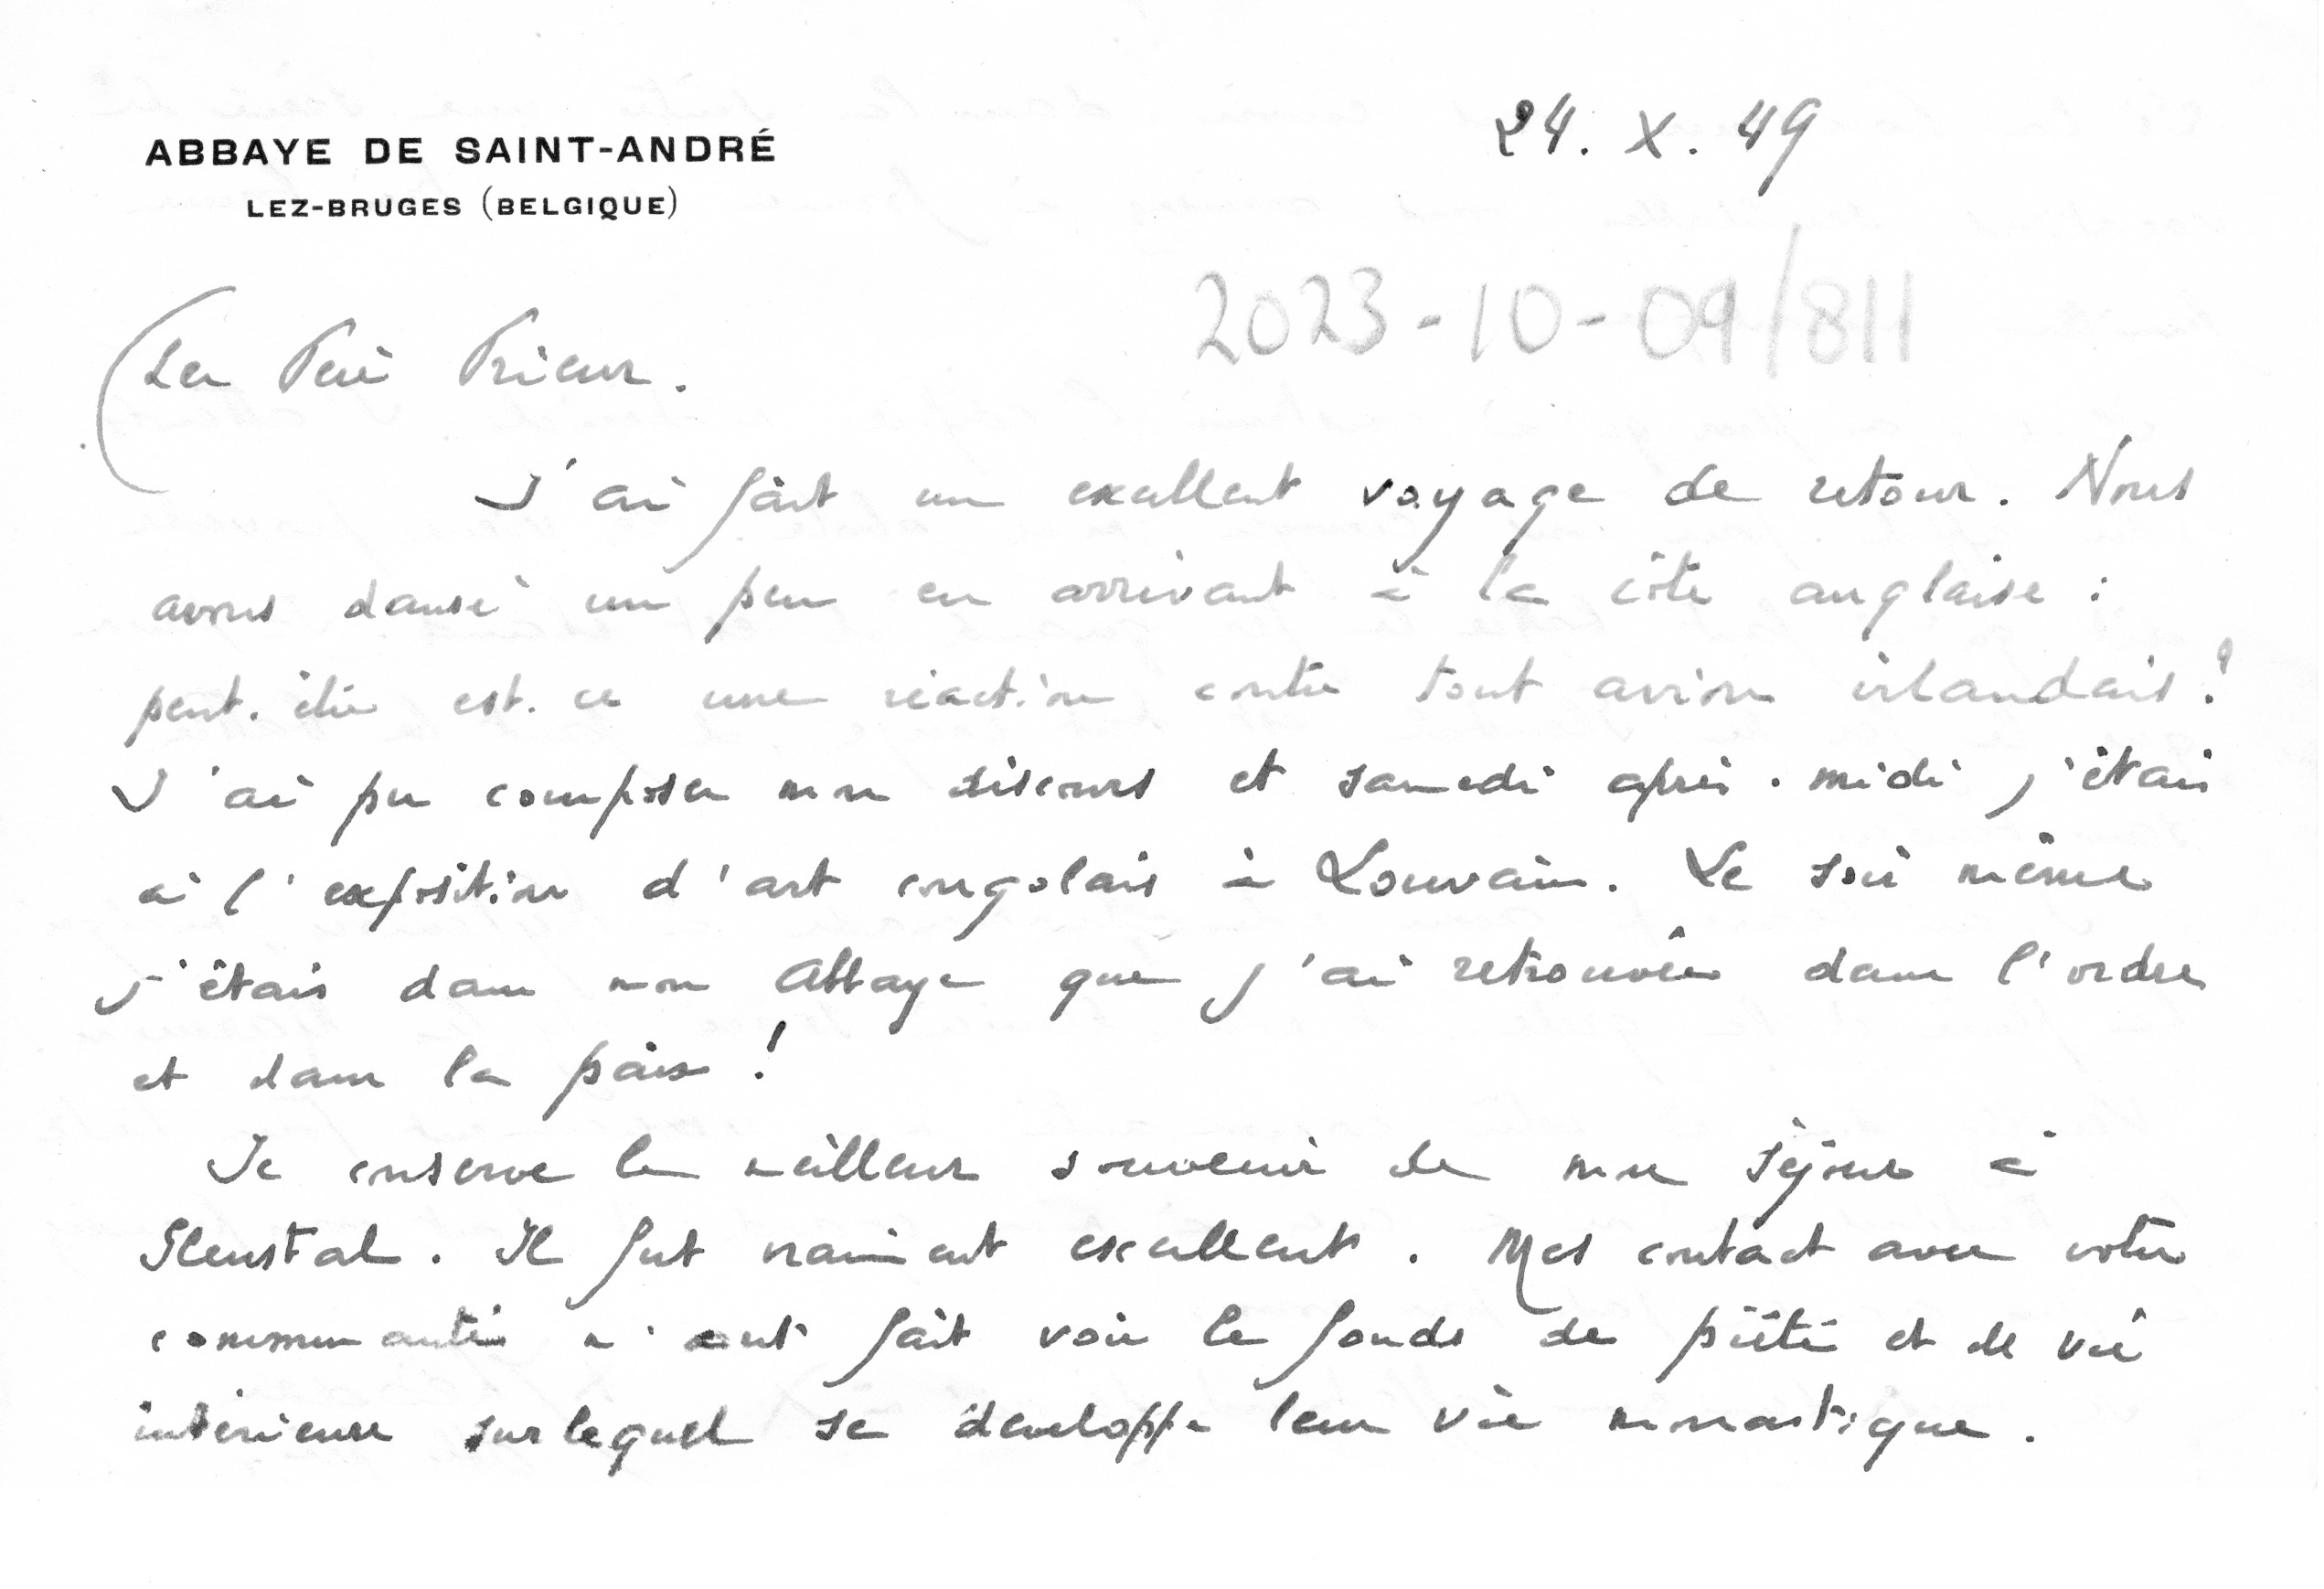 ABBAYE DE SAINT-ANDRÉ
LEZ-BRUGES (BELGIQUE)
24. X. 49
2023-10-09/811
Père Prieur.
J'ai fait un excellent voyage de retour. Nous
avons dansé un peu en arrivant à la côte anglaise :
peut-être est-ce une réaction contre tout avion irlandais?
J'ai pu composer mon discours et samedi après-midi j'étais
à l'exposition d'art congolais à Louvain. Le soir même
j'étais dans mon Abbaye que j'ai retrouvée dans l'ordre
et dans la paix !
Je conserve le meilleur souvenir de mon séjour à
Glenstal. Il fut vraiment excellent. Mes contact avec votre
communauté m'ont fait voir le fonds de piété et de vie
intérieure sur lequel se développe leur vie monastique.